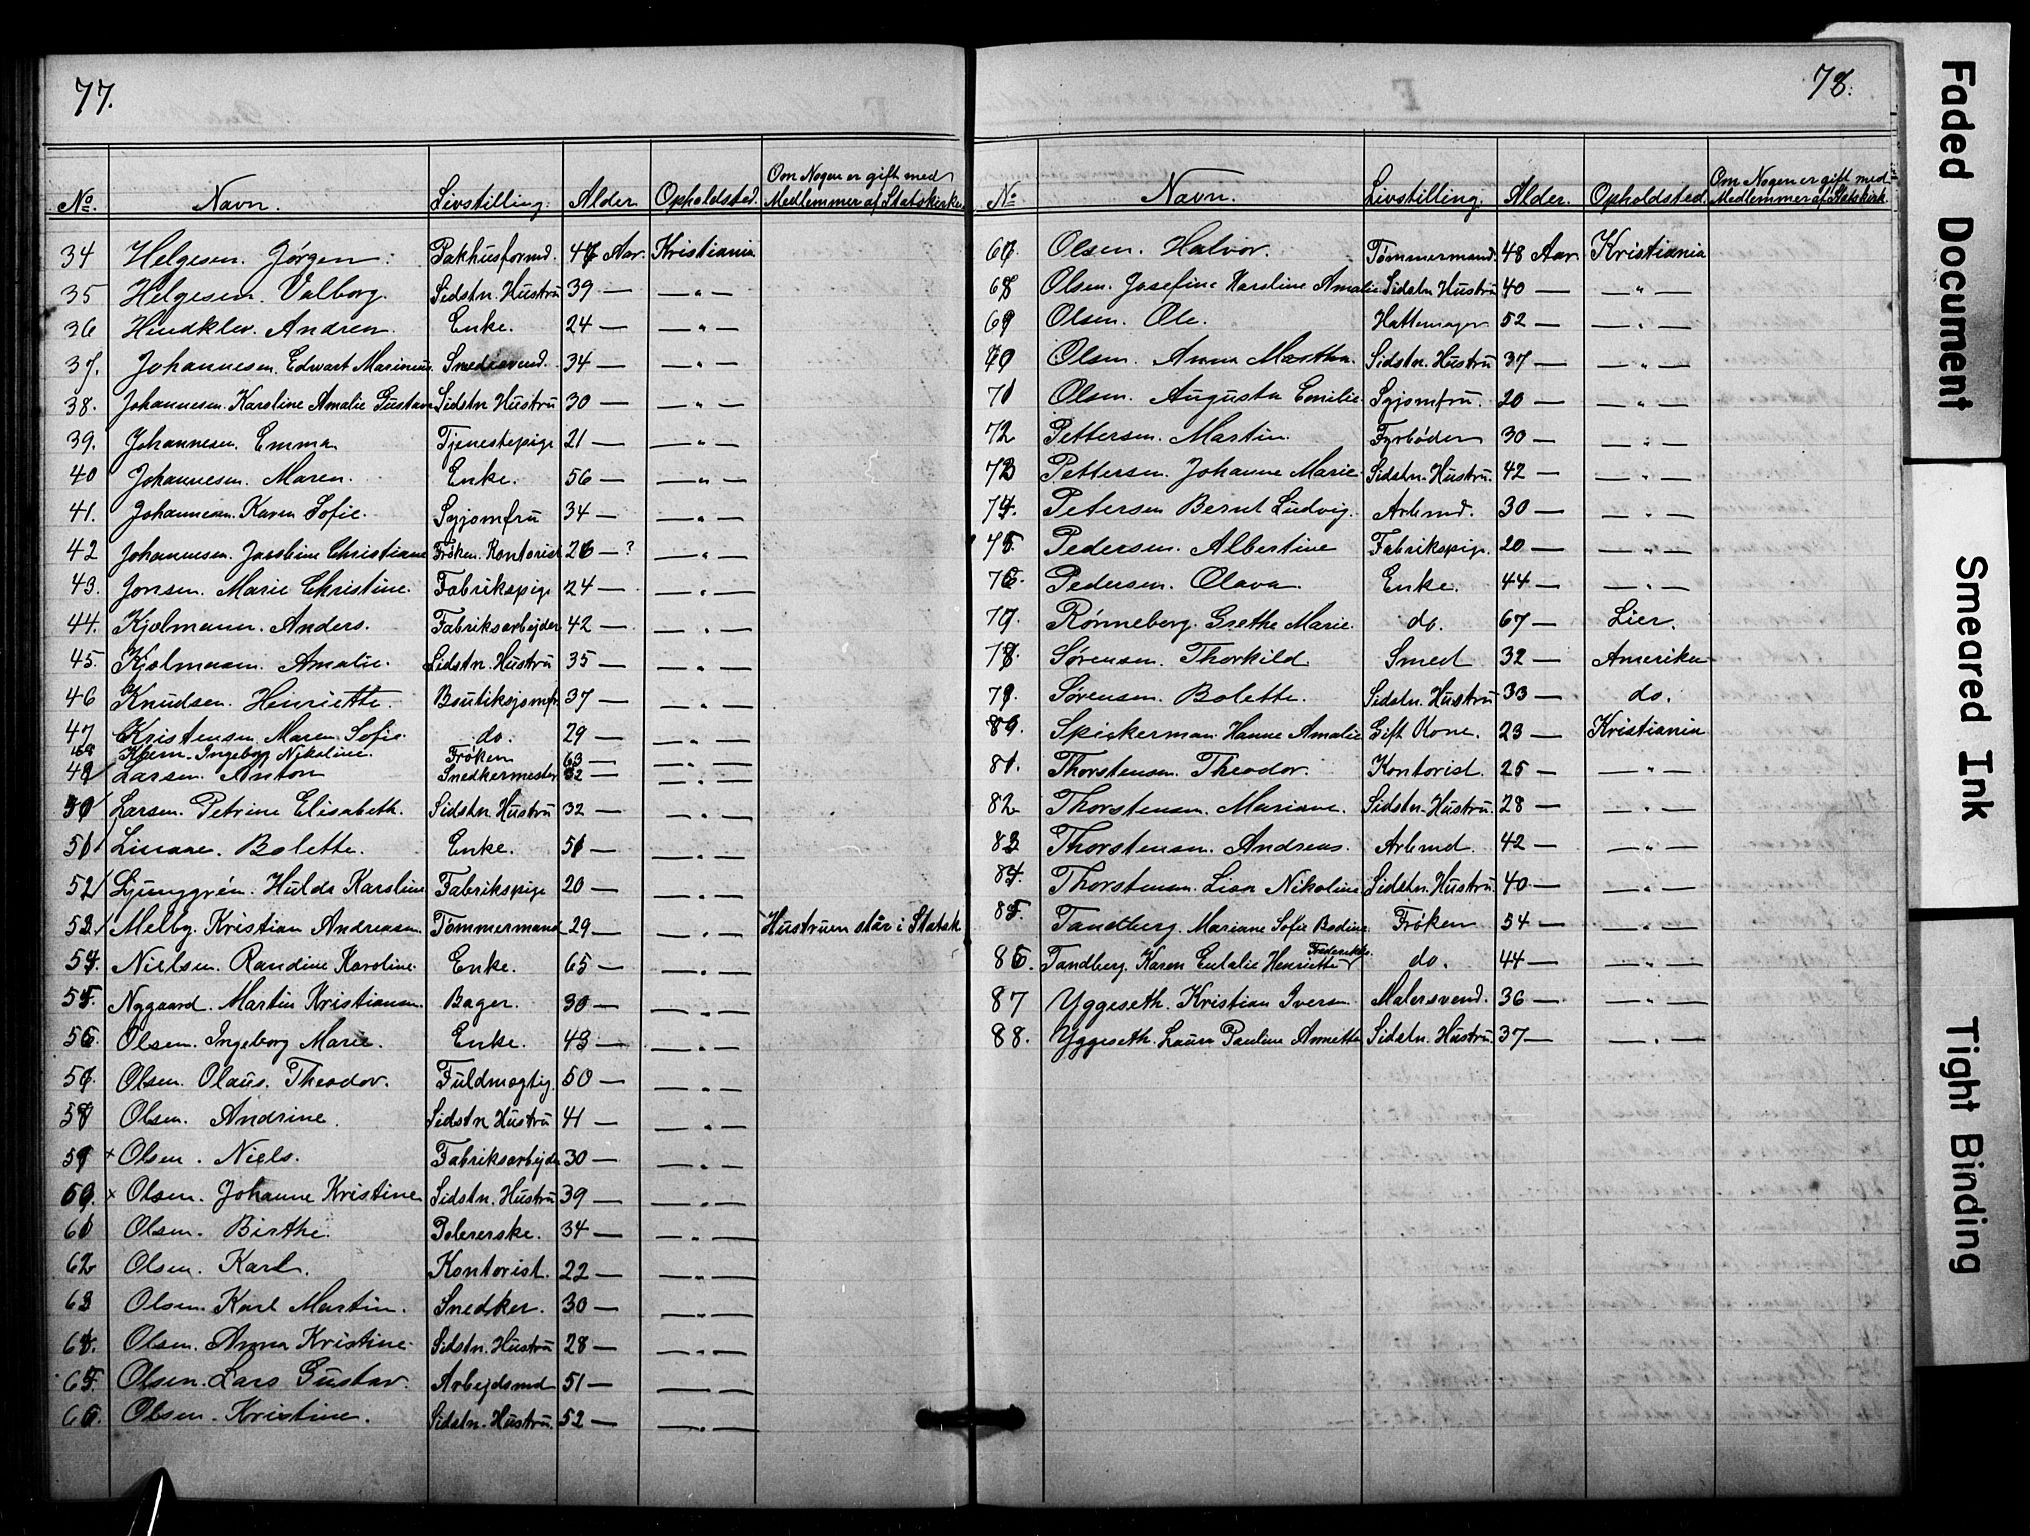 77.
№. Navn. Livstilling. Alder Opholdsted. Om Nogen er gift med Medlemmer af Statskirken
34 Helgesen. Jørgen. Pakhusformd. 47 Aar. Kristiania
35 Helgesen. Valborg. Sidstn. Hustru 39 — — " —
36 Hindklev. Andrea. Enke. 24 — — " —
37. Johannesen. Edwart Marinius. Smedesvend. 34 — — " —
38. Johannesen. Karoline Amalie Gustava Sidstn Hustru 30 — — " —
39. Johannesen. Emma Tjenestepige 21 — — " —
40 Johannesen. Maren. Enke. 56 — — " —
41. Johannesen. Karen Sofie. Syjomfru 34 — — " —
42 Johannesen. Jacobine Christiane Frøken. Kontorist 26 — ? — " —
43. Jonsen. Marie Christine. Fabrikspige 24 — — " —
44. Kjølmann. Anders. Fabriksarbejder 42 — — " —
45. Kjølmann. Amalie. Sidstn. Hustru 35 — — " —
46 Knudsen. Henriette. Boutiksjomfr. 37 — — " —
47 Kristensen Maren Sofie. do. 29 — — " —
48 Ingeborg Nikoline. Frøken 63 — — " —
49 Larsen. Anton Snedkermester 32 — — " —
50 Larsen. Petrine Elisabeth. Sidstn. Hustru 32 — — " —
51 Linaae. Bolette. Enke. 51 — — " —
52 Ljunggrén. Hulda Karoline Fabrikspige 20 — — " —
53 Melby. Kristian Andreasen Tømmermand 29 — — " — Hustruen står i Statsk.
54. Nielsen. Randine Karoline. Enke. 65 — — " —
55. Nygaard. Martin Kristiansen. Bager. 30 — — " —
56. Olsen. Ingeborg Marie. Enke. 43 — — " —
57. Olsen. Olaus. Theodor. Fuldmægtig 50 — — " —
58 Olsen. Andrine. Sidstn Hustru 41 — — " —
59 × Olsen. Niels. Fabriksarbejder 30 — — " —
60. × Olsen. Johanne Kristine Sidstn. Hustru 39 — — " —
61 Olsen. Birthe. Polererske. 34 — — " —
62 Olsen. Karl. Kontorist. 22 — — " —
63 Olsen. Karl Martin. Snedker. 30 — — " —
64. Olsen. Anna Kristine. Sidstn. Hustru 28 — — " —
65. Olsen. Lars Gustav. Arbejdsmd 51 — — " —
66 Olsen. Kristine. Sidstn. Hustru. 52 — — " —
78.
№ Navn. Livstilling. Alder. Opholdsted. Om Nogen er gift med Medlemmer af Statskirk.
67 Olsen. Halvor. Tømmermand. 48 Aar. Kristiania
68 Olsen. Josefine Karoline Amalie Sidstn Hustru 40 — — " —
69 Olsen. Ole. Hattemager 52 — — " —
70 Olsen. Anna Martha. Sidstn. Hustru 37 — — " —
71 Olsen. Augusta Emilie. Syjomfru. 20 — — " —
72 Pettersen. Martin. Fyrbøder 30 — — " —
73 Pettersen. Johanne Marie. Sidstn. Hustru. 42 — — " —
74. Petersen Bernt Ludvig. Arbmd. 30 — — " —
75. Pedersen. Albertine Fabrikspige. 20 — — " —
76. Pedersen. Olava Enke. 44 — — " —
77. Rønneberg. Grethe Marie. do. 67 — Lier.
78. Sørensen. Thorkild Smed 32 — Amerika
79. Sørensen. Bolette. Sidstn. Hustru 33 — do.
80. Spickerman. Hanne Amalie Gift Kone. 23 — Kristiania
81. Thorstensen. Theodor. Kontorist. 25 — — " —
82 Thorstensen. Mariane. Sidstn. Hustru. 28 — — " —
83 Thorstensen. Andreas. Arbmd. 42 — — " —
84. Thorstensen. Lisa Nikoline Sidstn. Hustru. 40 — — " —
85. Tandberg. Mariane Sofie Bodine Frøken 54 — — " —
86. Tandberg. Karen Eulalie Henriette Frederikke. do. 44 — — " —
87 Yggeseth. Kristian Iversen. Malersvend. 36 — — " —
88. Yggeseth. Laura Pauline Annette Sidstn. Hustru. 37 — — " —
Faded Document
Smeared Ink
Tight Binding